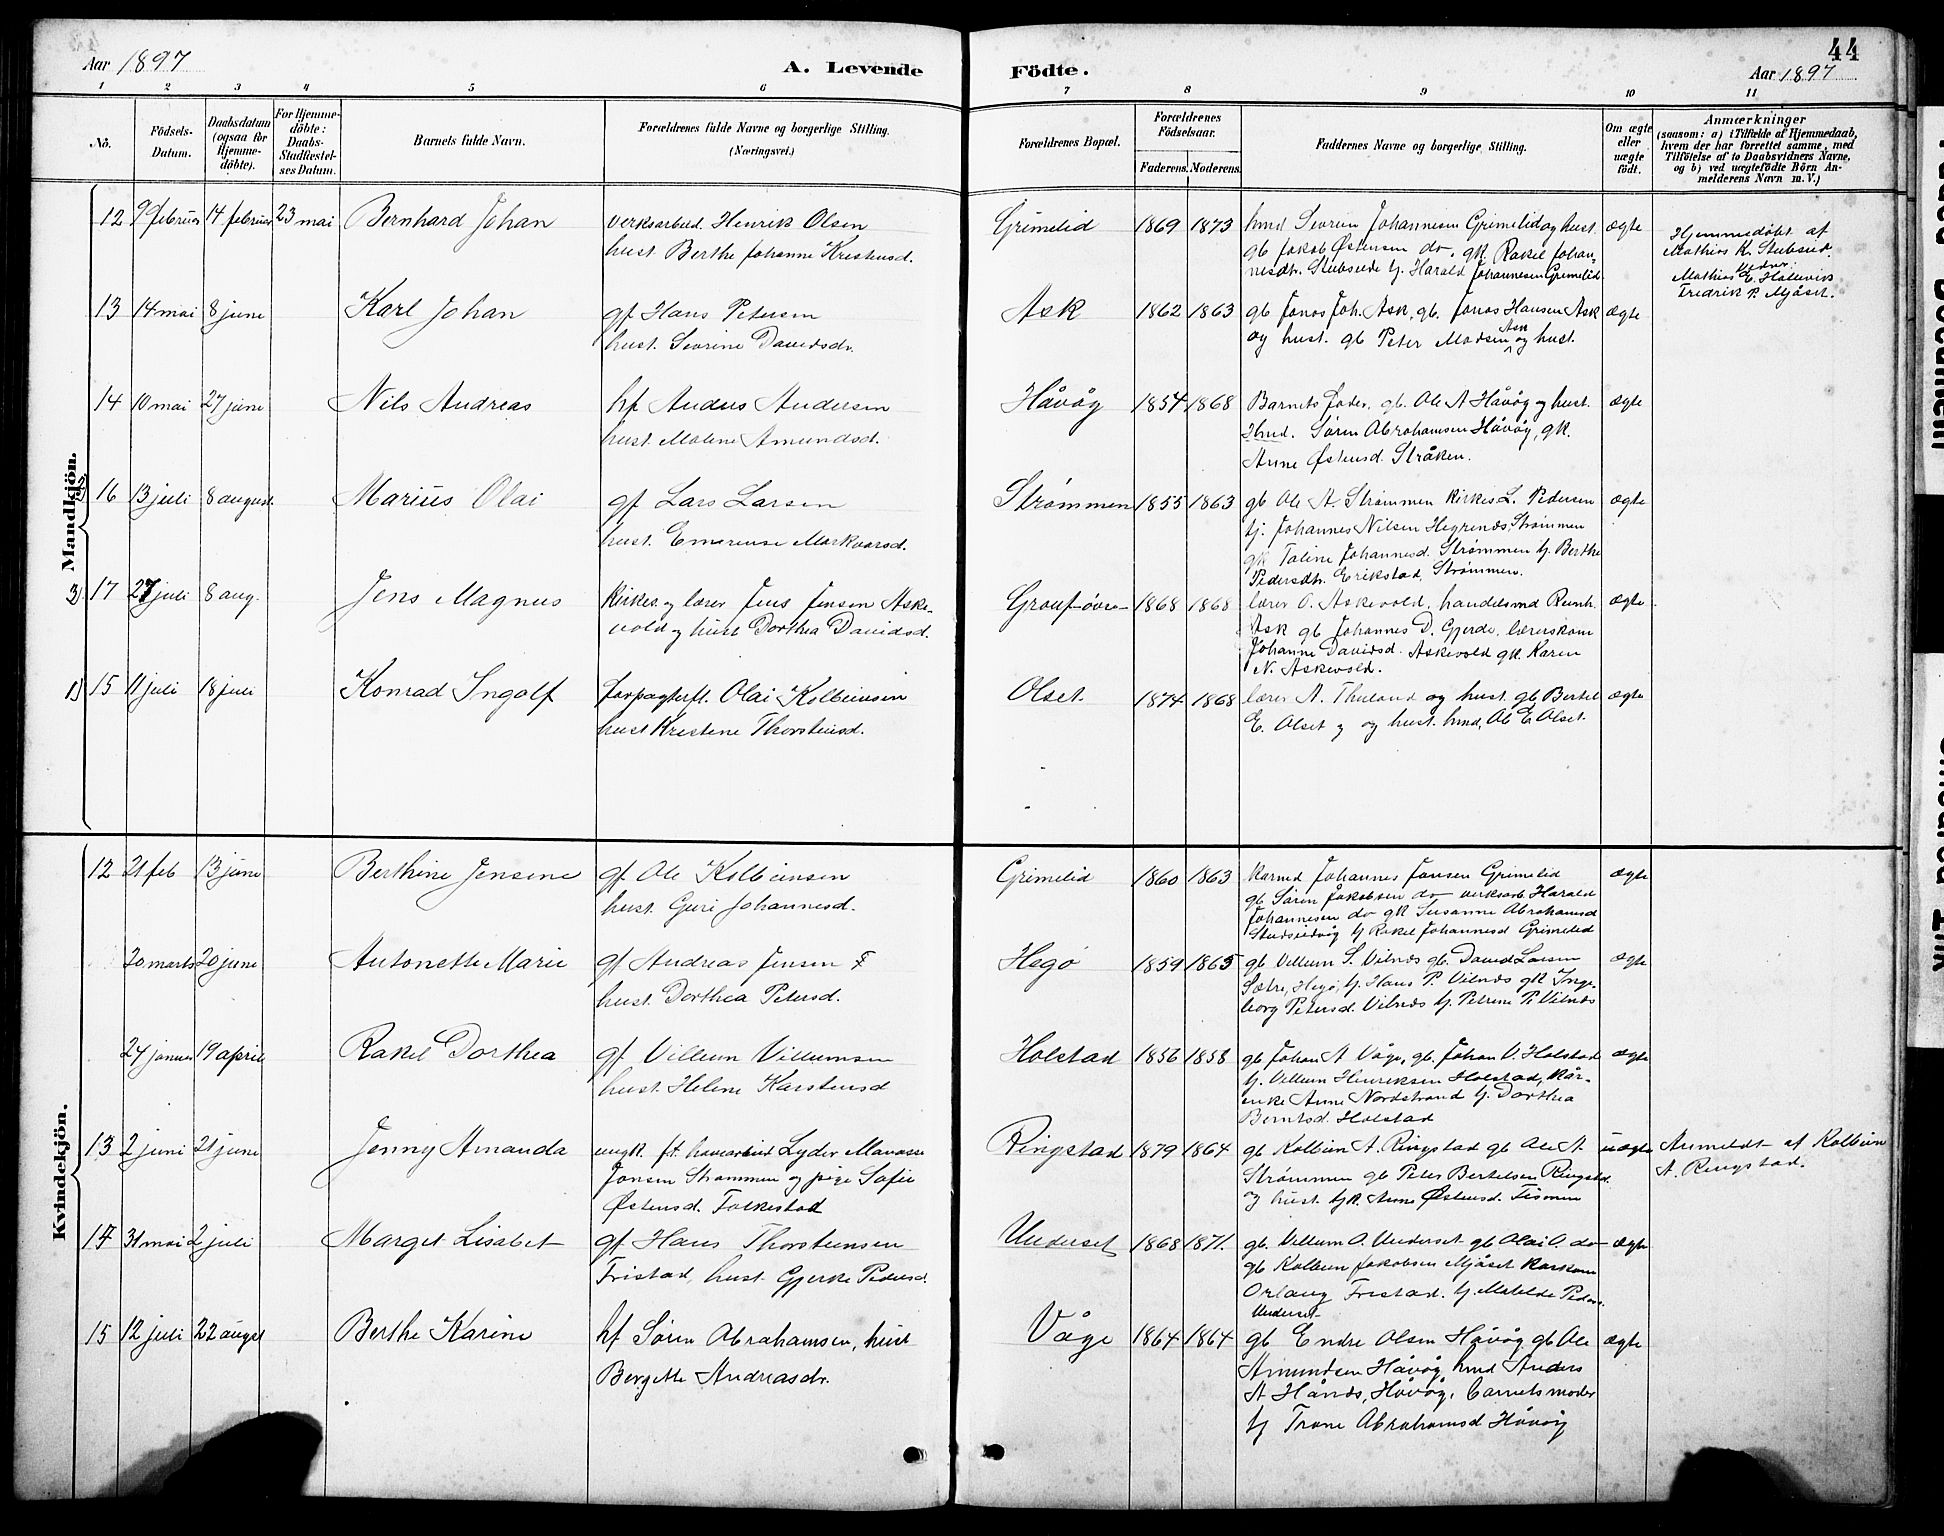 44
Aar 1897
A. Levende
Födte.
Aar 1897
1 2 3 4 5 6 7 8 9 10 11
No.
Födsels-
Datum.
Daabsdatum
(ogsaa for
Hjemme-
döbte).
For Hjemme-
döbte:
Daabs-
Stadfæstel-
ses Datum.
Barnets fulde Navn.
Forældrenes fulde Navne og borgerlige Stilling.
(Næringsvei.)
Forældrenes Bopæl.
Forældrenes
Födselsaar.
Faderens. Moderens.
Faddernes Navne og borgerlige Stilling.
Om ægte
eller
uægte
født.
Anmærkninger
(saasom: a) i Tilfælde af Hjemmedaab,
hvem der har forrettet samme, med
Tilföielse af to Daabsvidners Navne,
og b) ved uægtefödte Börn An-
melderens Navn m. V.)
Mandkjön.
12 9 februar 14 februar 23 mai Bernhard Johan
verksarbeid. Henrik Olsen
hust. Berthe Johanne Kristensd.
Grimelid 1869 1873
hmd Severin Johannesen Grimelid og hust.
gb Jakob Østensen do, gk. Rakel Johan-
nesdtr. Stubseide tj. Harald Johannesen Grimelid
ægte
Hjemmedøbt af
Mathias K. Stubseid.
Vidner:
Mathias E. Hellevik
Fredrik P. Mjåset.
13 14 mai 8 june Karl Johan
gf Hans Petersen
hust. Sevrine Davidsdr.
Ask 1862 1863
gb Jonas Joh. Ask, gb. Jonas Hansen Ask
og hust. gb Peter Madsen Ask og hust.
ægte
14 10 mai 27 june Nils Andreas
hf Anders Andersen
hust. Malene Amundsd.
Håvøg 1854 1868
Barnets fader, gb. Ole A Håvøg og hust.
Hmd. Søren Abrahamsen Håvøg, gk.
Anne Østensd. Stråken.
ægte
2) 16 13 juli 8 august. Marius Olai
gf Lars Larsen
hust. Emerense Markvarsd.
Strømmen 1855 1863
gb Ole A. Strømmen kirkes. L. Pedersen
tj. Johannes Nilsen Hegrenæs, Strømmen
gk Taline Johannesd. Strømmen tj. Berthe
Pedersdtr. Erikstad, Strømmen.
ægte
3) 17 27 juli 8 aug. Jens Magnus
Kirkes. og lærer Jens Jensen Aske-
vold og hust Dorthea Davidsd.
1868 1868
lærer O. Askevold, handelsmd Reinh.
Ask gb Johannes D. Gjerde, lærerskone
Johanne Davidsd. Askevold gk. Karen
N. Askevold.
ægte
1) 15 11 juli 18 juli Konrad Ingolf
forpagterf. Olai Kolbeinsen
hust Kristine Thorsteinsd.
Olset. 1874 1868
lærer A. Thueland og hust. gb Bertel
E. Olset og hust. hmd, Ole E. Olset.
ægte
Kvindekjön.
12 21 feb 13 june Berthine Jensine
gf. Ole Kolbeinsen
hust. Guri Johannesd.
Grimelid 1860 1863
karmd Johannes Jonsen Grimelid
gb Søren Jakobsen do verksarb Harald
Johannesen do gk Susanne Abrahamsd
tj Rakel Johannesd Grimelid
ægte
20 marts 20 june Antonette Marie
gf Andreas Jensen
hust. Dorthea Petersd.
Hegø 1859 1865
gb Villum S. Vilnæs gb. David Larsen
Sætre, Hegø, tj. Hans P. Vilnæs gk Inge-
borg Petersd. Vilnæs tj. Petrine P. Vilnæs
ægte
27 januar 19 april Rakel Dorthea
gf Villum Villumsen
hust. Helene Karstensd
Holstad 1856 1858
gb Johan A. Våge, gb. Johan V. Holstad
tj. Villum Henriksen Holstad, kår-
enke Anne Nordstrand tj. Dorthea
Berntsd Holstad
ægte
13 2 juni 21 june Jenny Amanda
ungk. ft. havearbeid Lyder Manasse
Jonsen Strømmen og pige Sofie
Østensd. Folkestad
Ringstad 1879 1864
gb Kolbein A. Ringstad gb Ole A.
Strømmen gb Peter Bertelsen Ringstad
og hust. tjk. Anne Østensd.
uægte
Anmeldt af Kolbein
A. Ringstad.
14 31 mai 2 juli Marget Lisabet
gf Hans Thorsteinsen
Fristad, hust. Gjerke Pedersd.
Underset 1868 1871.
gb. Villum O. Underset gb Olai O. do
gb Kolbein Jakobsen Mjåset karkone
Fristad. tj. Matilde Peders.
Underset
ægte
15 12 juli 22 august Berthe Karine
hf Søren Abrahamsen, hust
Bergette Andreasdr.
Våge 1864 1864
gb Endre Olsen Håvøg, gb Ole
Amundsen Håvøg, hmd Anders
A Håvøg, barnets moder
tj Trone Abrahamsd Håvøg
ægte